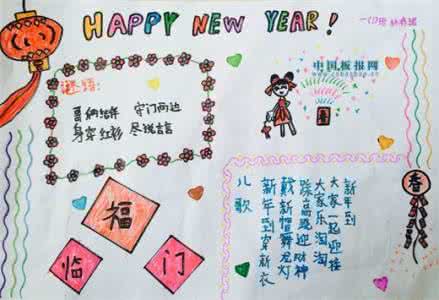 HAPPY NEW YEAR!
中国板报网
谜语：
哥俩结伴 守门两边
身穿红衫 尽说吉言
福
临
门
春
儿歌
新年到
大家一起迎挂
大家乐淘淘
踩高跷迎财神
戴新帽舞龙灯
新年到穿新衣